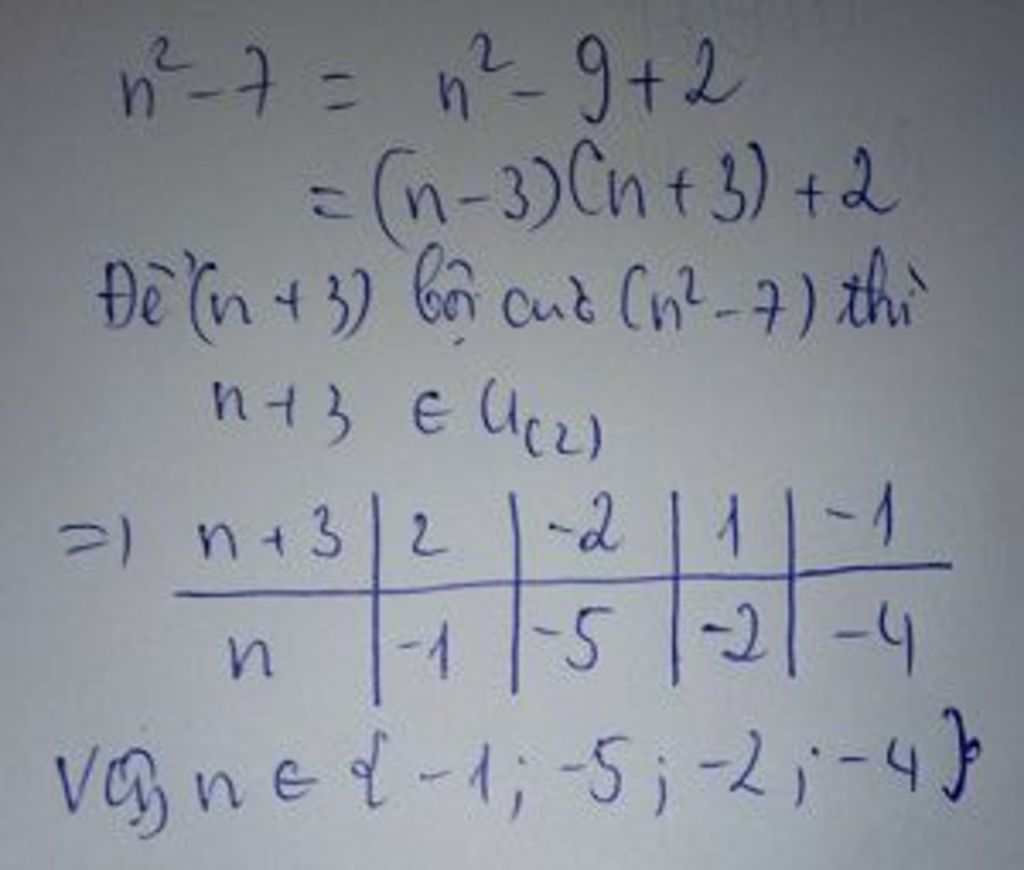 n² - 7 = n² - 9 + 2
= (n - 3)(n + 3) + 2
Để (n + 3) bội của (n² - 7) thì
n + 3 ∈ Ư(2)
=> n + 3 | 2 | -2 | 1 | -1
n | -1 | -5 | -2 | -4
Vậy n ∈ { -1; -5; -2; -4 }